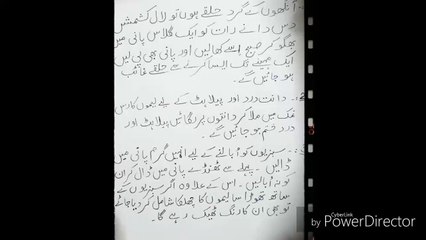 آنکھوں کے گرد حلقے ہوں تو لال کشمش
دس دانے رات کو ایک گلاس پانی میں
بھگو کر صبح اسے کھالیں اور پانی بھی پی لیں
ایک مہینے تک ایسا کرنے سے حلقے غائب
ہو جائیں گے۔
دانت درد اور پیلاہٹ کے لیے لیموں کا رس
نمک میں ملا کر دانتوں پر لگائیں پیلاہٹ اور
درد ختم ہو جائیں گے۔
سبزیوں کو ابالنے کے لیے انہیں گرم پانی میں
ڈالیں۔ پہلے سے ٹھنڈے پانی میں ڈال کر ان
کو نہ ابالیں۔ اس کے علاوہ اگر سبزیوں کے
ساتھ تھوڑا سا لیموں کا چھلکا شامل کر دیا جائے
تو بھی ان کا رنگ ٹھیک رہے گا۔
CyberLink
PowerDirector